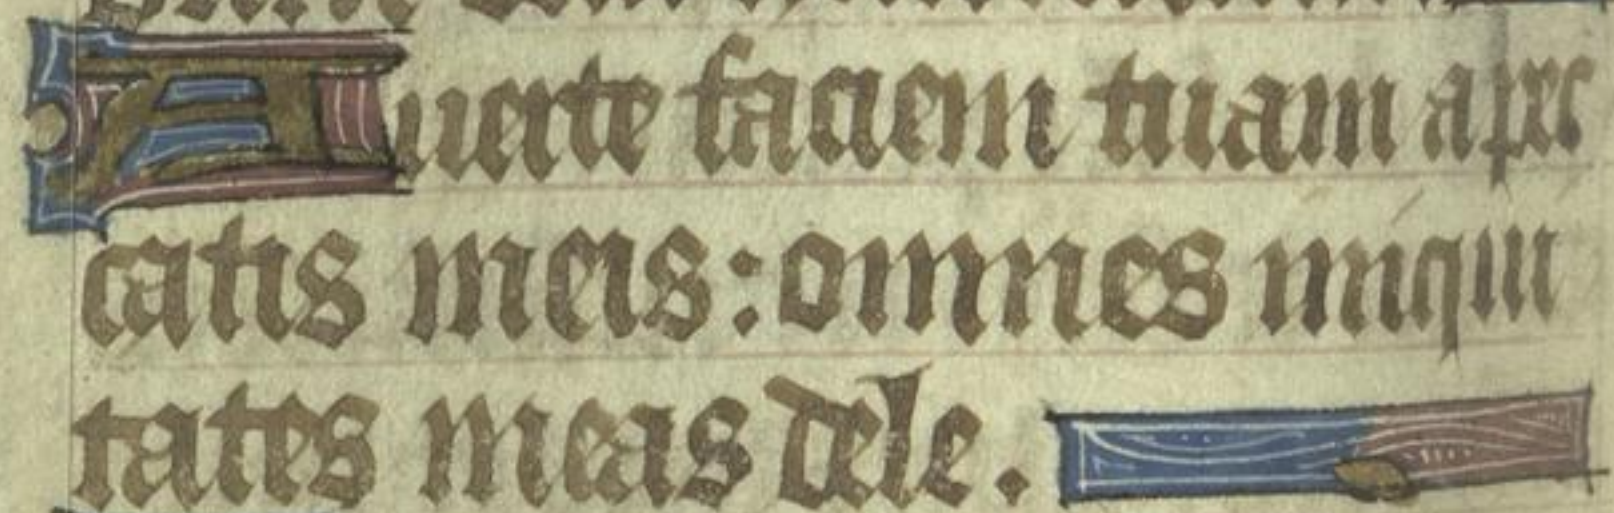 Auerte faciem tuam a pec
catis meis: omnes iniqui
tates meas dele.